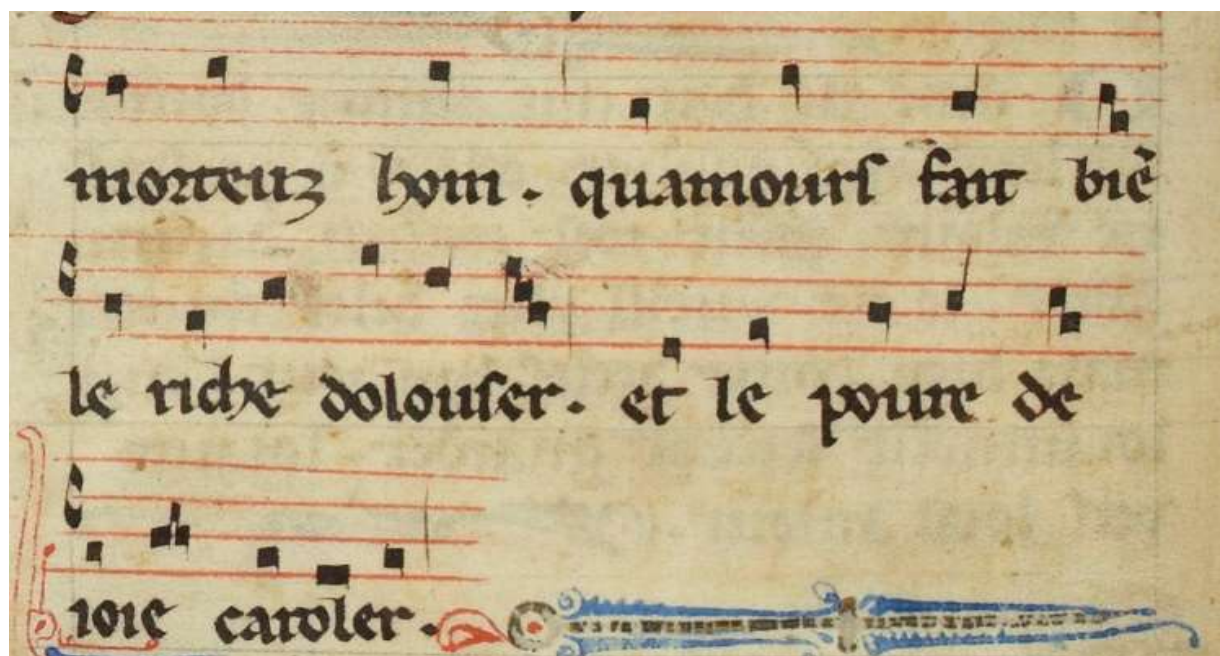 morteuz hom. quamourſ fait biē
le riche dolouſer. et le poure de
ioie caroler.